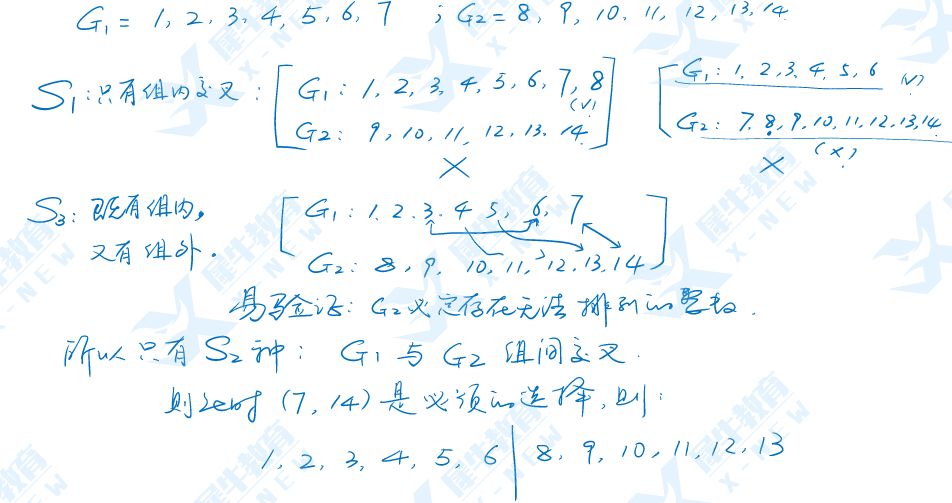 G₁ = 1, 2, 3, 4, 5, 6, 7 ; G₂ = 8, 9, 10, 11, 12, 13, 14
S₁: 只有组内交叉: G₁: 1, 2, 3, 4, 5, 6, 7, 8 (√)
G₂: 9, 10, 11, 12, 13, 14
×
G₁: 1, 2, 3, 4, 5, 6 (√)
G₂: 7, 8, 9, 10, 11, 12, 13, 14
(×)
×
S₃: 既有组内, G₁: 1, 2, 3, 4, 5, 6, 7
又有组外. G₂: 8, 9, 10, 11, 12, 13, 14
易验证: G₂必定存在无法排列的整数.
所以只有S₂种: G₁与G₂组间交叉.
则此时 (7, 14) 是必须的选择, 则:
1, 2, 3, 4, 5, 6 | 8, 9, 10, 11, 12, 13
犀牛教育
X-NEW